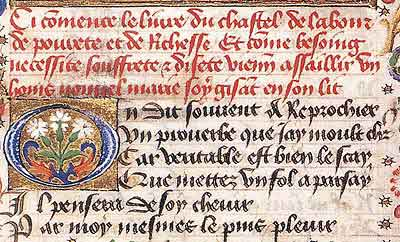 Ci comence le liure du chastel de labour
de pourete et de Richesse Et come besoing
necessite souffrete & disete vienn assaillir vn
home nouuel marie soy gisat en son lit
On dit souuent & Reprochier
Vn prouerbe que iay moult chr
Car veritable est bien le scay
Que mettez vn fol a par say
Il pensera de soy cheuir
Par moy mesmes le puis pleuir